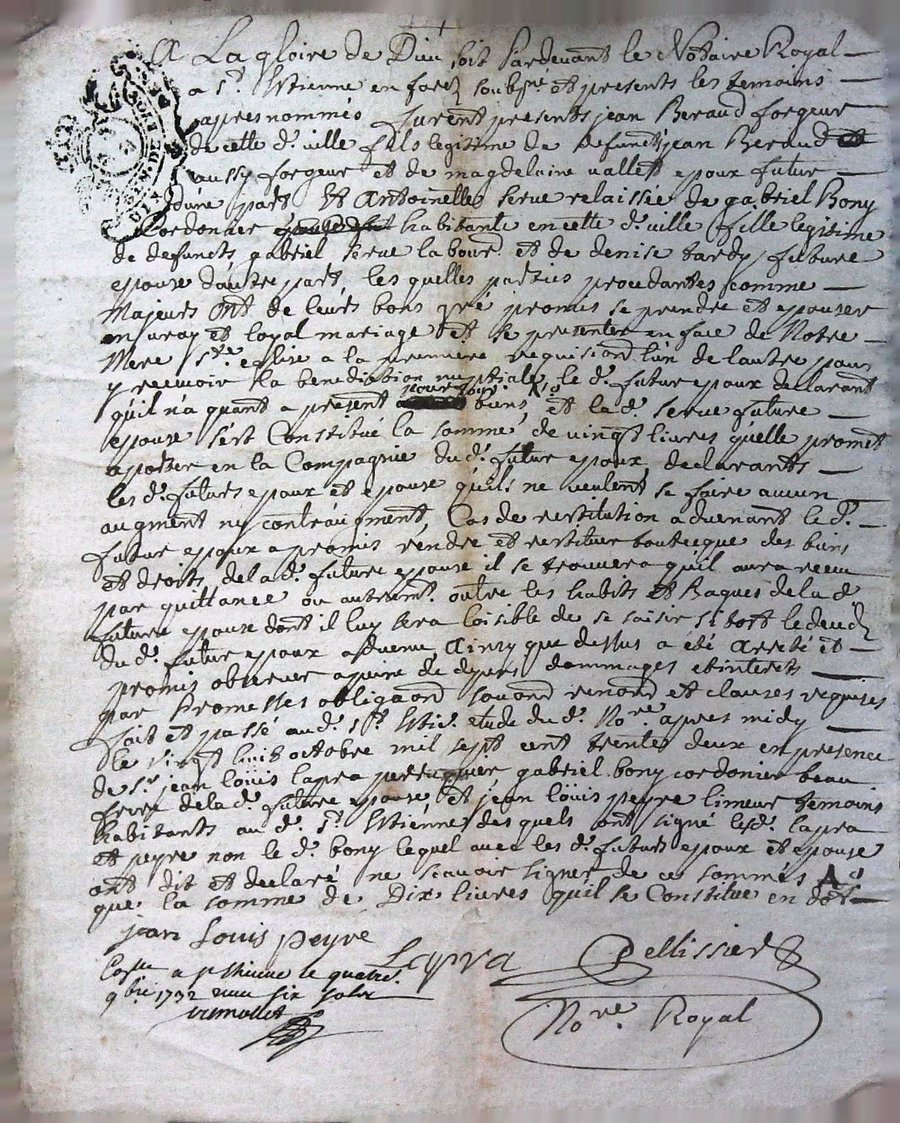 A La gloire de Dieu soit Pardevant le Notaire Royal
a St. Estienne en forez soubsne et presents les temoins
apres nommés furent presents jean Beraud forgeur
de cette d. ville fils legitime de defunct jean Beraud
aussy forgeur et de magdelaine vallett epoux futur
d'une part Et Antoinette serue relaissée de gabriel Bony
Cordonier habitante en cette d. ville fille legitime
de defuncts gabriel serue labour. et de denise tardy future
epouse d'autre part, les quelles parties procedantes comme
Majeurs ont de leurs bons gré promis se prendre et epouser
en vray et loyal mariage et se presenter en face de Notre
Mere ste. eglise a la premiere requision l'un de l'autre pour
y recevoir la benediction nuptiale, le d. futur epoux declarant
qu'il n'a quant a present pour tous Ao
biens, et la d. serue future
epouse s'est Constitué la somme de vingt livres qu'elle promet
aporter en la Compagnie du d. futur epoux, declarants
les d. futurs epoux et epouse qu'ils ne veulent se faire aucun
augment ny contraugment, Cas de restitution advenant le d.
futur epoux a promis rendre et restituer ce que des biens
et droits de la d. future epouse il se trouvera qu'il aura receu
par quittance ou autremt. outre les habits et Bagues de la d.
future epouse dont il luy sera loisible de se saisir si tost le deced
du d. futur epoux advenu, Ainsy que dessus a été arreté et
promis observer a peine de depens dommages et interets
par Promesses obligaond soumond renond et clauses requises
fait et passé au d. St. Estie. etude du d. Nore. apres midy
le vingt huit octobre mil sept cent trente deux en presence
de sr. jean louis lapra perruquier, gabriel bony cordonier beau
frere de la d. future epouse, et jean louis peyre limeur temoins
habitants au d. St. Estienne des quels ont signé les d. lapra
et peyre non le d. bony lequel avec les d. futurs epoux et epouse
ont dit et declaré ne scavoir signer de ce sommés Ao
que la somme de Dix livres qu'il se Constitue en dot
jean Louis peyre
Lapra
Pellissier
a st. Estienne le quatre
9bre 1732 six sols
Nore. Royal